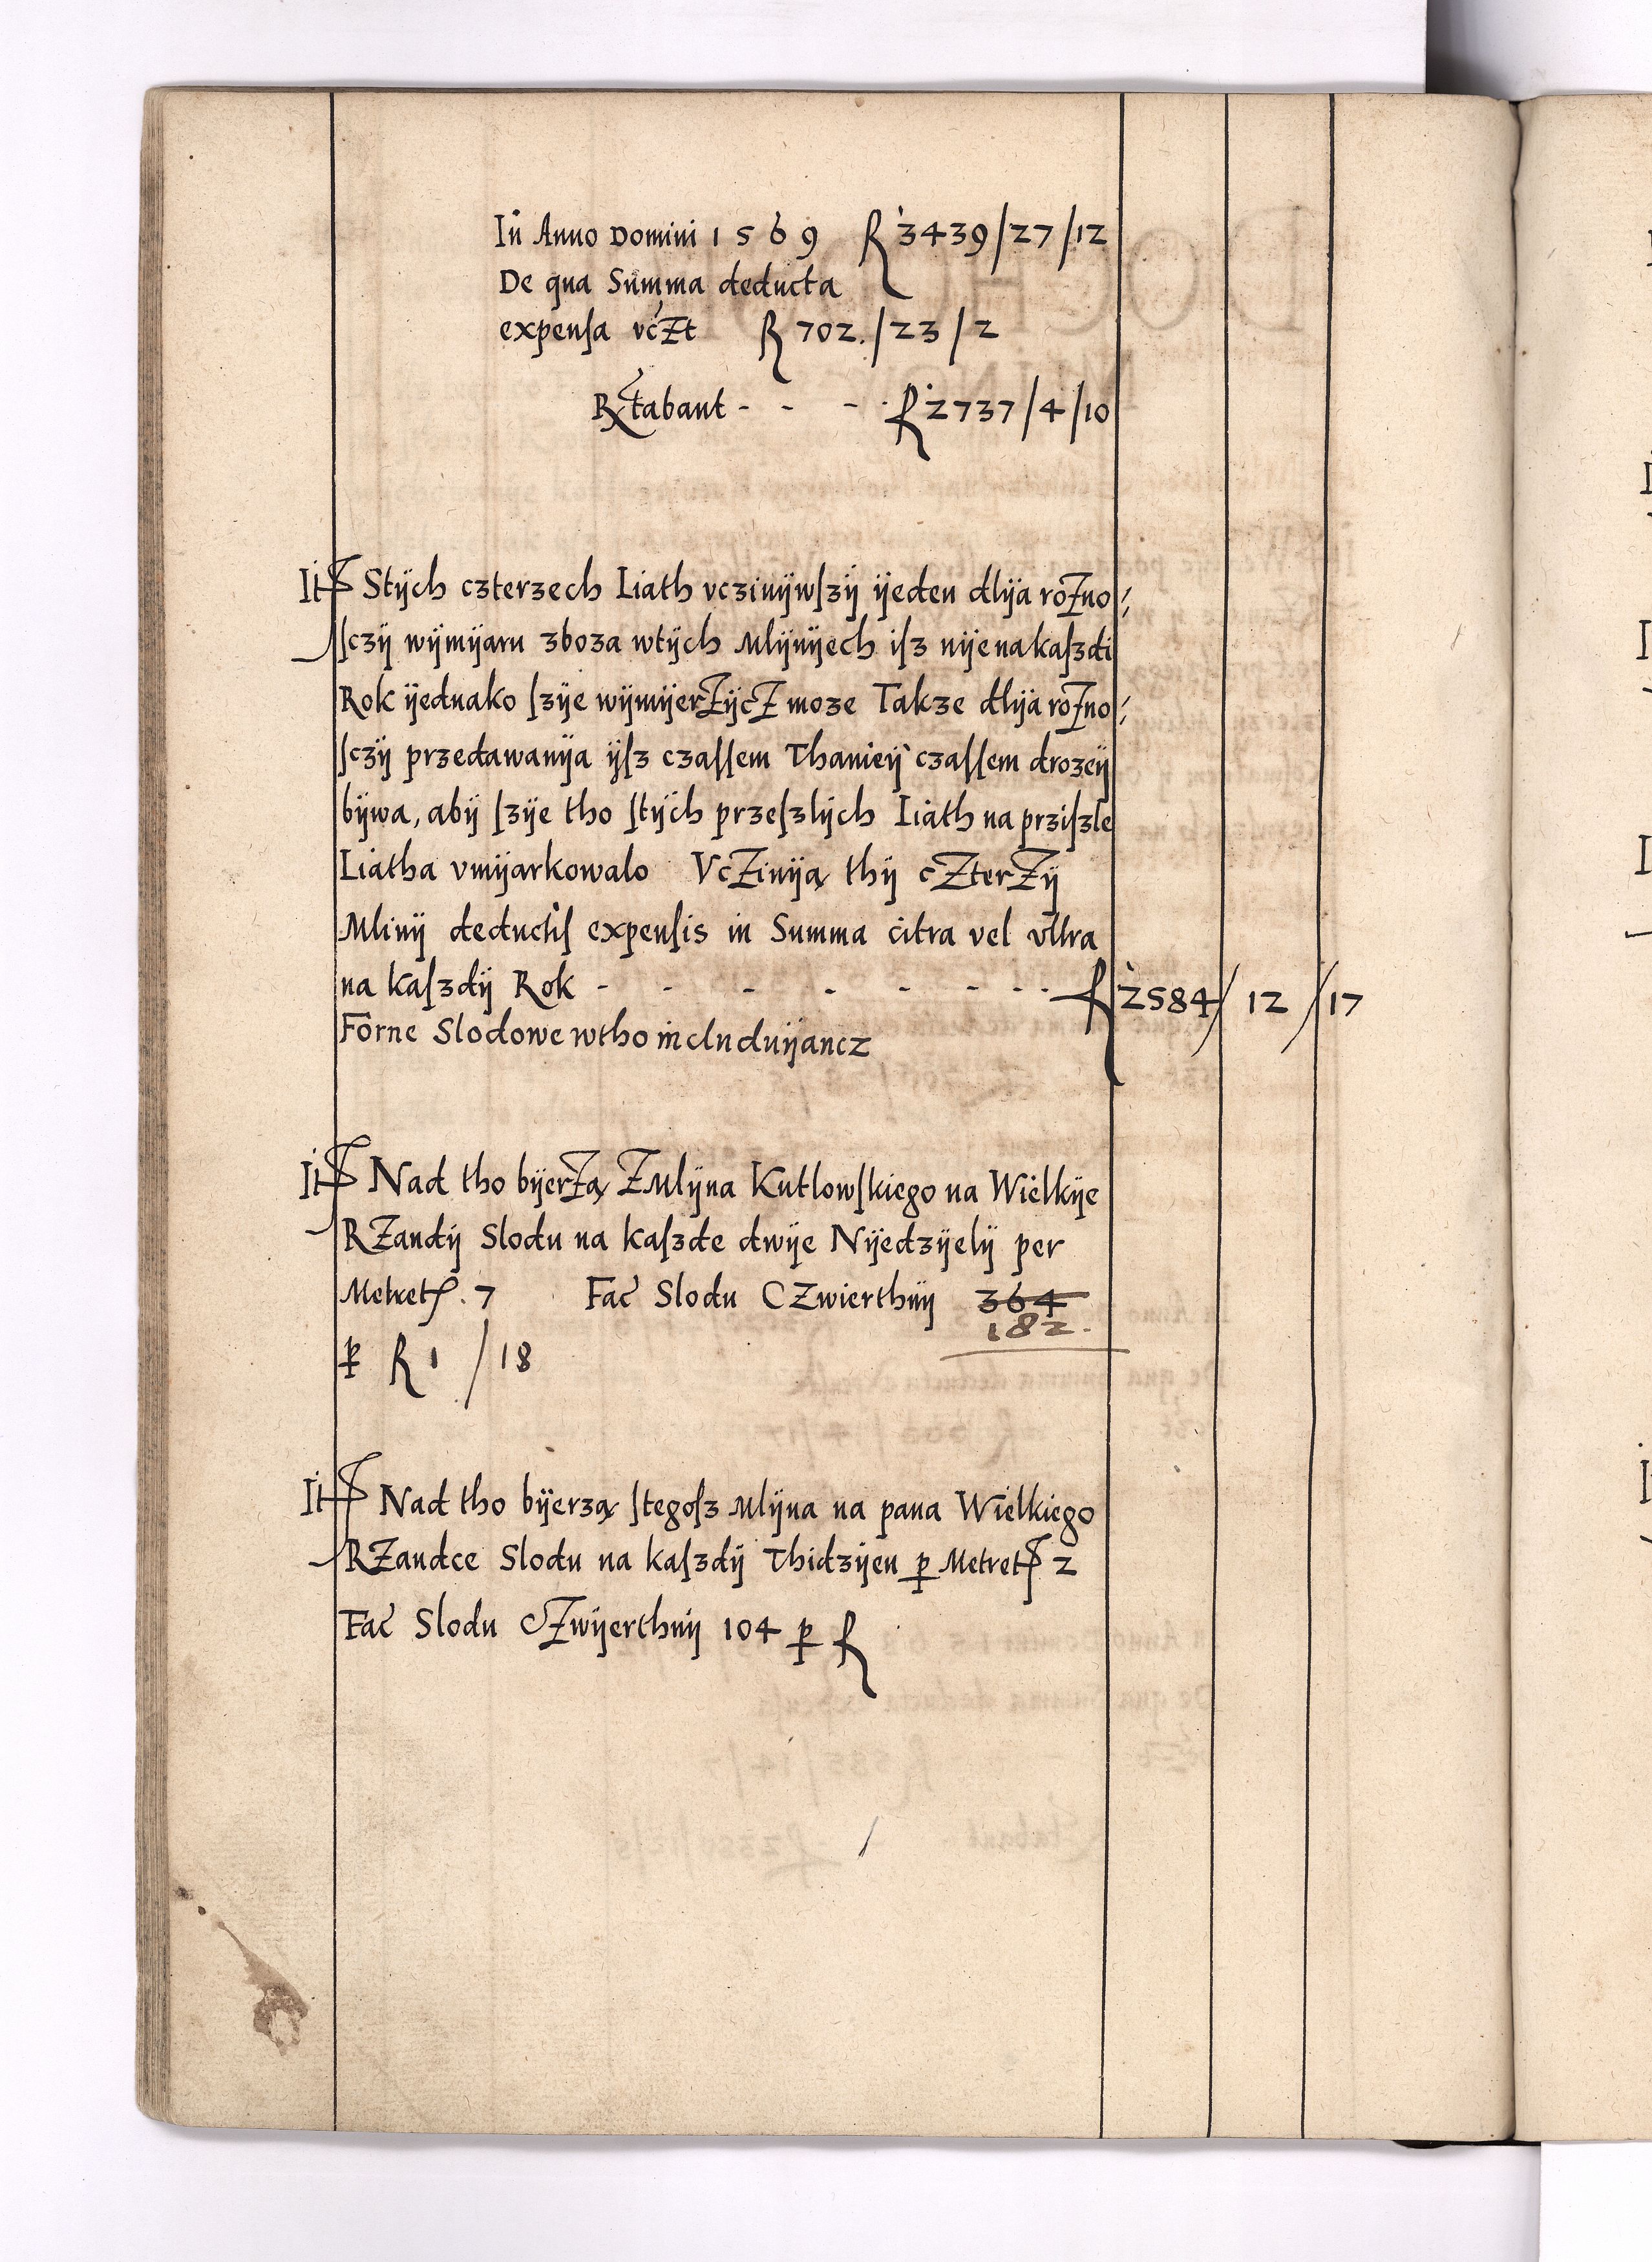 In Anno Domini 1569 f 3439/27/12
De qua Summa deducta
expensa vczt f 702./23/2
Rtabant - - - f 2737/4/10
It Stÿch czterzech Liath vczinÿwſzÿ ÿeden dlÿa rozno:
ſczÿ wÿmÿaru zboza wtÿch Mlÿnÿech iſz nÿe na kaſzdi
Rok ÿednako ſzÿe wÿmÿerzÿcz moze Takze dlÿa rozno:
ſczÿ przedawanÿa ÿſz czaſſem Thanieÿ czaſſem drozeÿ
bÿwa, abÿ ſzÿe tho ſtÿch przeſzlÿch Liath na prziſzle
Liatha vmÿarkowalo Vczinÿą thÿ czterzÿ
Mlinÿ deductis expenſis in Summa citra vel vltra
na kaſzdÿ Rok - - - - - - - - f 2584/12/17
Forne Slodowe wtho includuÿancz
It Nad tho bÿerzą z Mlÿna Kutlowſkiego na Wielkÿe
Rzandÿ Slodu na kaſzde dwÿe Nÿedzÿelÿ per
Metret. 7 Fac Slodu Czwierthnÿ 364
182.
p f 1/18
It Nad tho bÿerzą ſtegoſz Mlÿna na pana Wielkiego
Rzandce Slodu na kaſzdÿ Thidzÿen p Metret 2
Fac Slodu Czwÿerthnÿ 104 p f